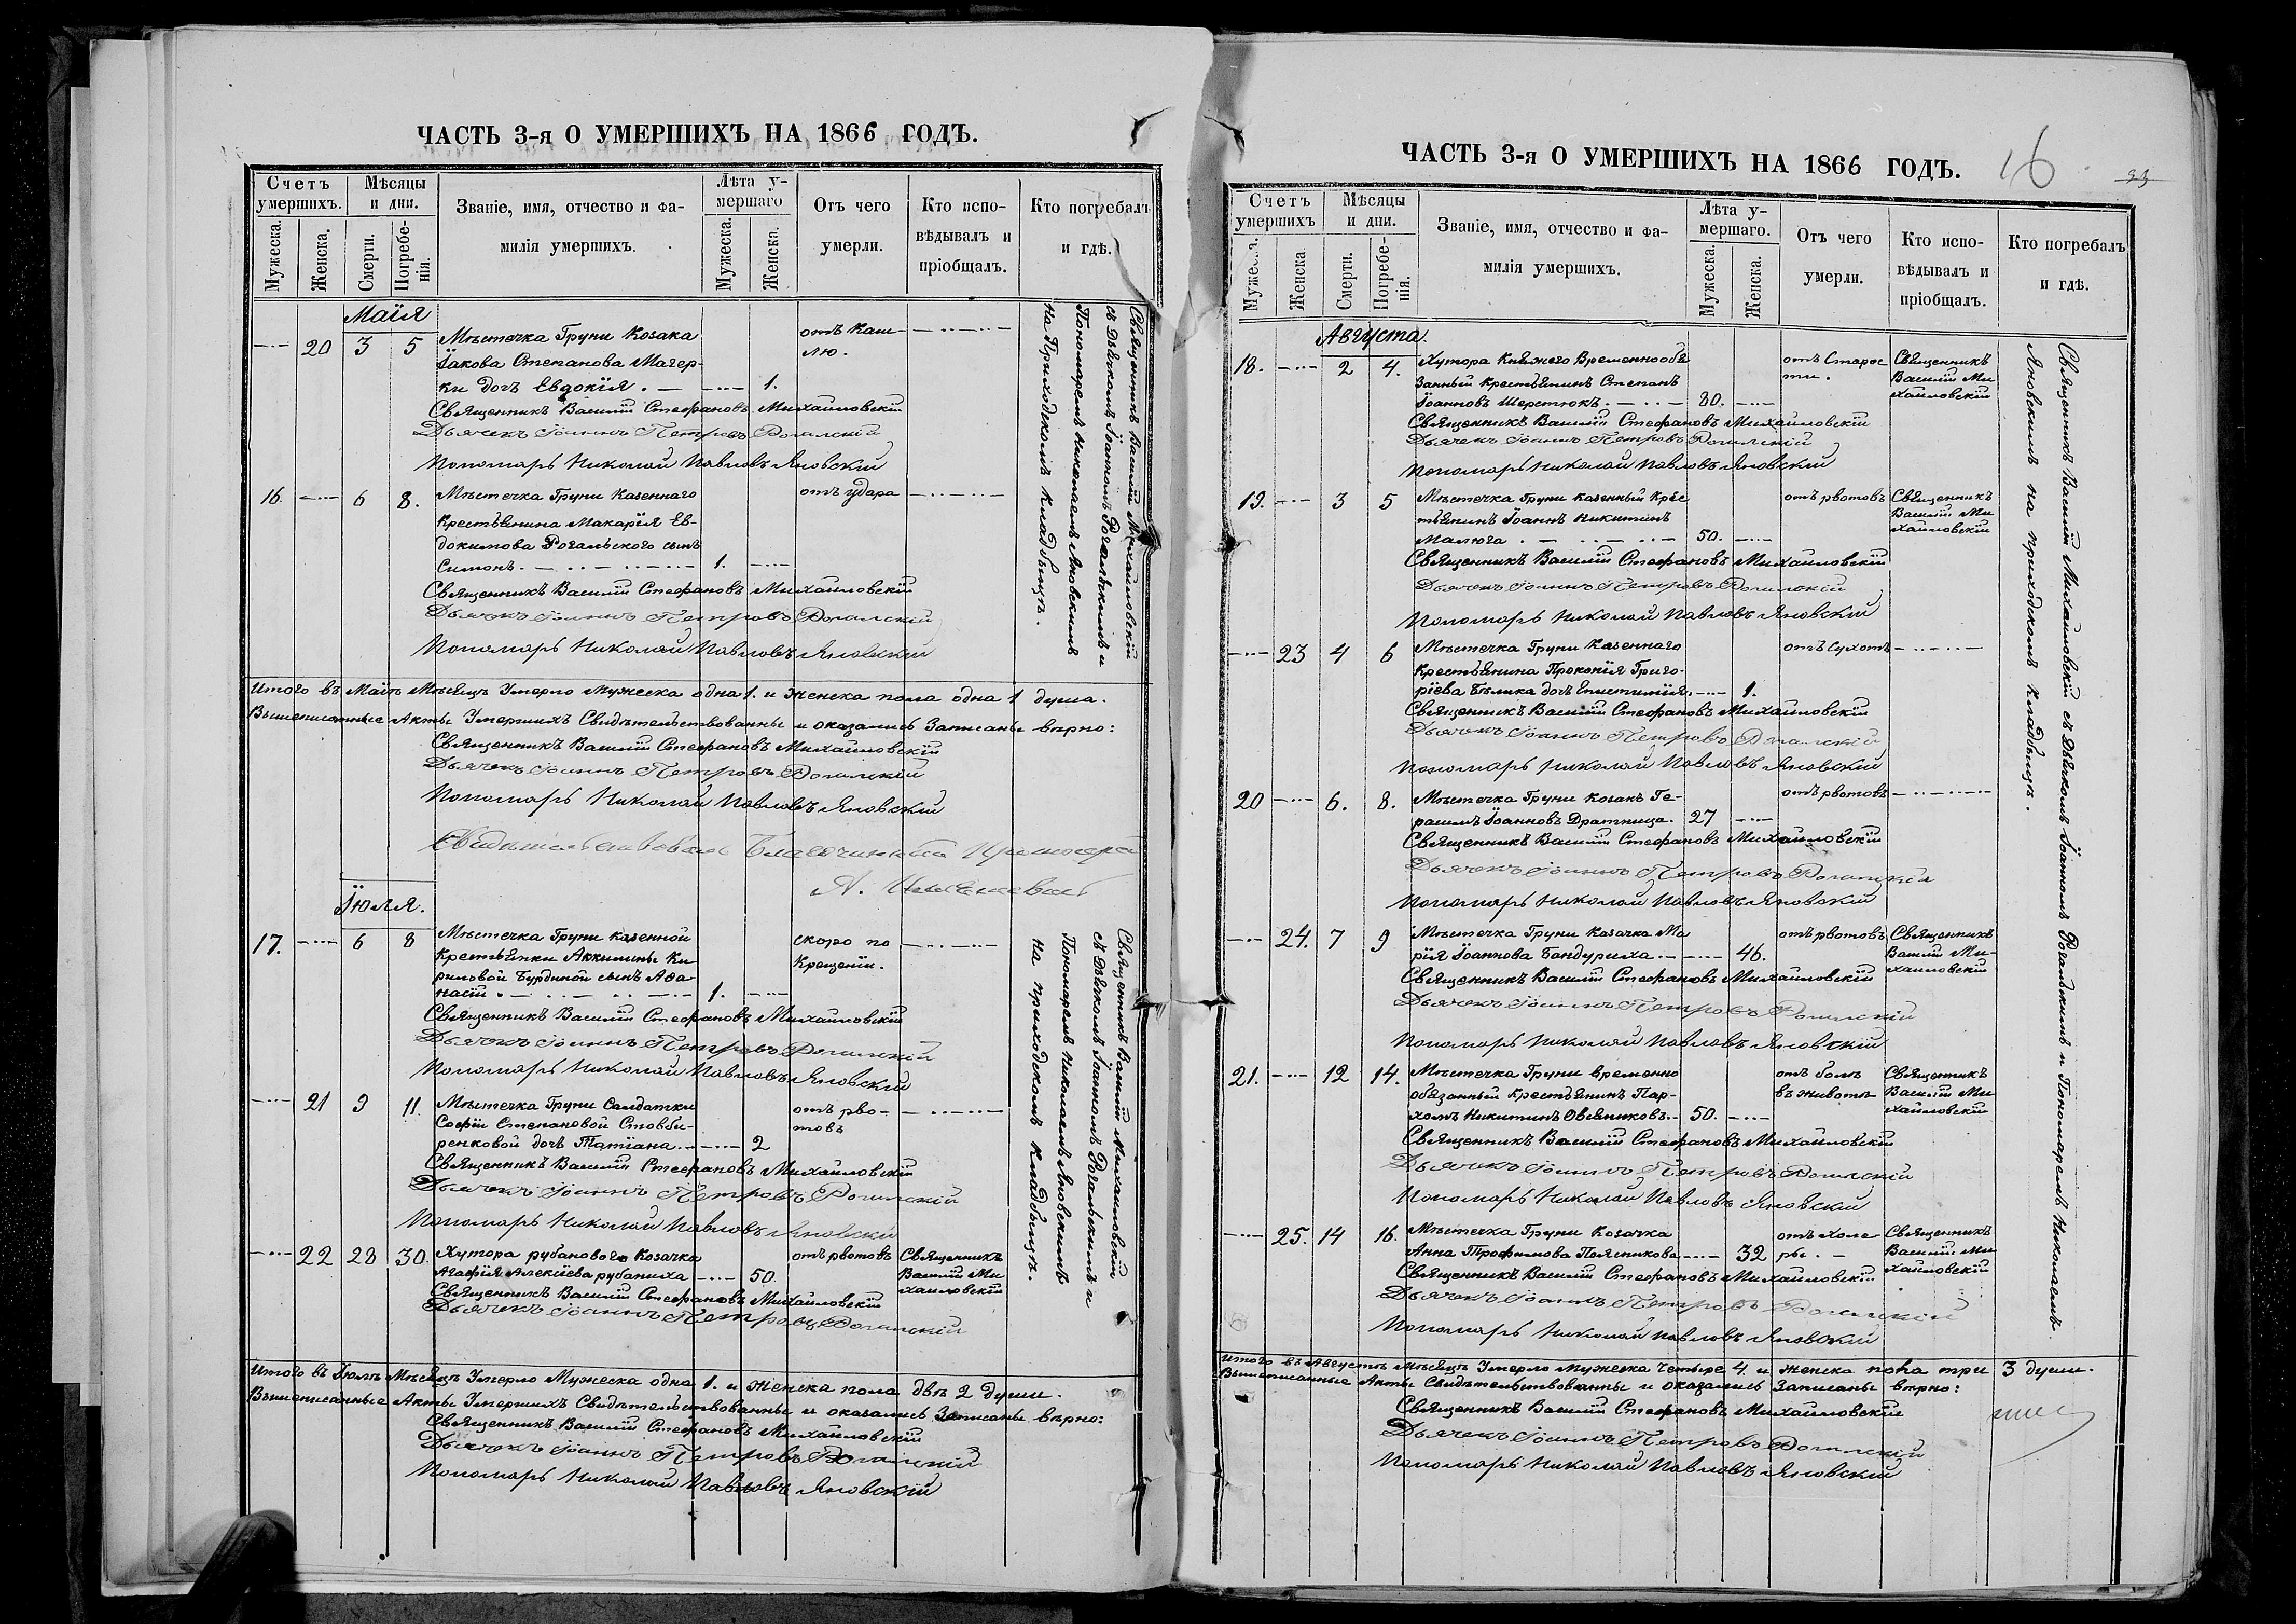 ЧАСТЬ 3-я О УМЕРШИХЪ НА 1866 ГОДЪ.
Счетъ умершихъ.
Мѣсяцы и дни.
Званіе, имя, отчество и фамилія умершихъ.
Лѣта умершаго
Отъ чего умерли.
Кто исповѣдывалъ и пріобщалъ.
Кто погребалъ и гдѣ.
Мужеска. Женска. Смерти. Погребенія. Мужеска. Женска.
Маія
20 3 5 Мѣстечка Груни Козака отъ каш-
Іакова Степанова Магер- лю.
ки дочь Евдокія. 1.
Священникъ Василій Стефановъ Михайловскій
Дьячекъ Іоаннъ Петровъ Рогальскій
Пономарь Николай Павловъ Яновскій
16. 6 8. Мѣстечка Груни Казеннаго отъ удара
Крестьянина Макарія Ев-
докимова Рогальского сынъ
Симонъ. 1.
Священникъ Василій Стефановъ Михайловскій
Дьячекъ Іоаннъ Петровъ Рогальскій
Пономарь Николай Павловъ Яновскій
Священникъ Василій Михайловскій
съ Дьячкомъ Іоанномъ Рогальскимъ и
Пономаремъ Николаемъ Яновскимъ
на Приходскомъ кладбищѣ.
Итого въ Маіѣ Мѣсяцѣ Умерло Мужеска одна 1. и женска пола одна 1 душа.
Вышеписанные Акты Умершихъ Свидѣтельствованны и оказались Записаны вѣрно:
Священникъ Василій Стефановъ Михайловскій
Дьячекъ Іоаннъ Петровъ Рогальскій
Пономарь Николай Павловъ Яновскій
Свидѣтельствовалъ Благочинный
А.
Іюля.
17. 6 8 Мѣстечка Груни казенной скоро по
Крестьянки Аккилины Ки- Крещеніи.
риловой Бурдиной сынъ Аѳа-
насій. 1.
Священникъ Василій Стефановъ Михайловскій
Дьячекъ Іоаннъ Петровъ Рогальскій
Пономарь Николай Павловъ Яновскій
21 9 11. Мѣстечка Груни Солдатки отъ рво-
Софіи Степановой Стовби- товъ
ренковой дочь Татіана. 2
Священникъ Василій Стефановъ Михайловскій
Дьячекъ Іоаннъ Петровъ Рогальскій
Пономарь Николай Павловъ Яновскій
22 28 30. Хутора рубанового Козачка отъ рвотовъ Священникъ
Агафія Алексіева рубаниха 50. Василій Ми
Священникъ Василій Стефановъ Михайловскій хайловскій
Дьячекъ Іоаннъ Петровъ Рогальскій
Священникъ Василій Михайловскій
съ Дьячкомъ Іоанномъ Рогальскимъ и
Пономаремъ Николаемъ Яновскимъ
на приходскомъ кладбищѣ.
Итого въ Іюлѣ Мѣсяцѣ Умерло Мужеска одна 1. и женска пола двѣ 2 души.
Вышеписанные Акты Умершихъ Свидѣтельствованны и оказались Записаны вѣрно:
Священникъ Василій Стефановъ Михайловскій
Дьячекъ Іоаннъ Петровъ Рогальскій
Пономарь Николай Павловъ Яновскій
ЧАСТЬ 3-я О УМЕРШИХЪ НА 1866 ГОДЪ.
16
Счетъ умершихъ
Мѣсяцы и дни.
Званіе, имя, отчество и фамилія умершихъ.
Лѣта умершаго.
Отъ чего умерли.
Кто исповѣдывалъ и пріобщалъ.
Кто погребалъ и гдѣ.
Мужеска. Женска Смерти. Погребенія. Мужеска. Женска.
Августа.
18. 2 4. Хутора Княжего Временнообя отъ Старос Священникъ
занный крестьянинъ Степанъ ти. Василій Ми
Іоанновъ Шерстюкъ. 80. хайловскій
Священникъ Василій Стефановъ Михайловскій
Дьячекъ Іоаннъ Петровъ Рогальскій
Пономарь Николай Павловъ Яновскій
19. 3 5 Мѣстечка Груни казенный Крес отъ рвотовъ Священникъ
тьянинъ Іоаннъ Никитинъ Василій Ми
Малюга. 50. хайловскій
Священникъ Василій Стефановъ Михайловскій
Дьячекъ Іоаннъ Петровъ Рогальскій
Пономарь Николай Павловъ Яновскій
23 4 6 Мѣстечка Груни Казеннаго отъ Сухотъ
Крестьянина Прокопія Григо-
ріева Бѣлика дочь Епистимія. 1.
Священникъ Василій Стефановъ Михайловскій
Дьячекъ Іоаннъ Петровъ Рогальскій
Пономарь Николай Павловъ Яновскій
20 6. 8. Мѣстечка Груни козакъ Ге- отъ рвотовъ
расимъ Іоанновъ Дратница. 27
Священникъ Василій Стефановъ Михайловскій
Дьячекъ Іоаннъ Петровъ Рогальскій
Пономарь Николай Павловъ Яновскій
24. 7 9 Мѣстечка Груни Казачка Ма отъ рвотовъ Священникъ
рія Іоаннова Бандуриха. 46. Василій Ми-
Священникъ Василій Стефановъ Михайловскій хайловскій
Дьячекъ Іоаннъ Петровъ Рогальскій
Пономарь Николай Павловъ Яновскій
21. 12 14. Мѣстечка Груни временно отъ боли Священникъ
обязанный Крестьянинъ Пар- въ животѣ Василій Ми
хомъ Никитинъ Овсянниковъ. 50. хайловскій
Священникъ Василій Стефановъ Михайловскій
Дьячекъ Іоаннъ Петровъ Рогальскій
Пономарь Николай Павловъ Яновскій
25. 14 16. Мѣстечка Груни Козачка отъ холе Священникъ
Анна Трофимова Полсникова 32 ры. Василій Ми
Священникъ Василій Стефановъ Михайловскій хайловскій
Дьячекъ Іоаннъ Петровъ Рогальскій
Пономарь Николай Павловъ Яновскій
Священникъ Василій Михайловскій съ Дьячкомъ Іоанномъ Рогальскимъ и Пономаремъ Николаемъ
Яновскимъ на приходскомъ кладбищѣ.
Итого въ Августѣ мѣсяцѣ Умерло мужеска четыре 4 и женска пола три 3 души.
Вышеписанные Акты Свидѣтельствованны и оказались Записаны вѣрно:
Священникъ Василій Стефановъ Михайловскій
Дьячекъ Іоаннъ Петровъ Рогальскій
Пономарь Николай Павловъ Яновскій